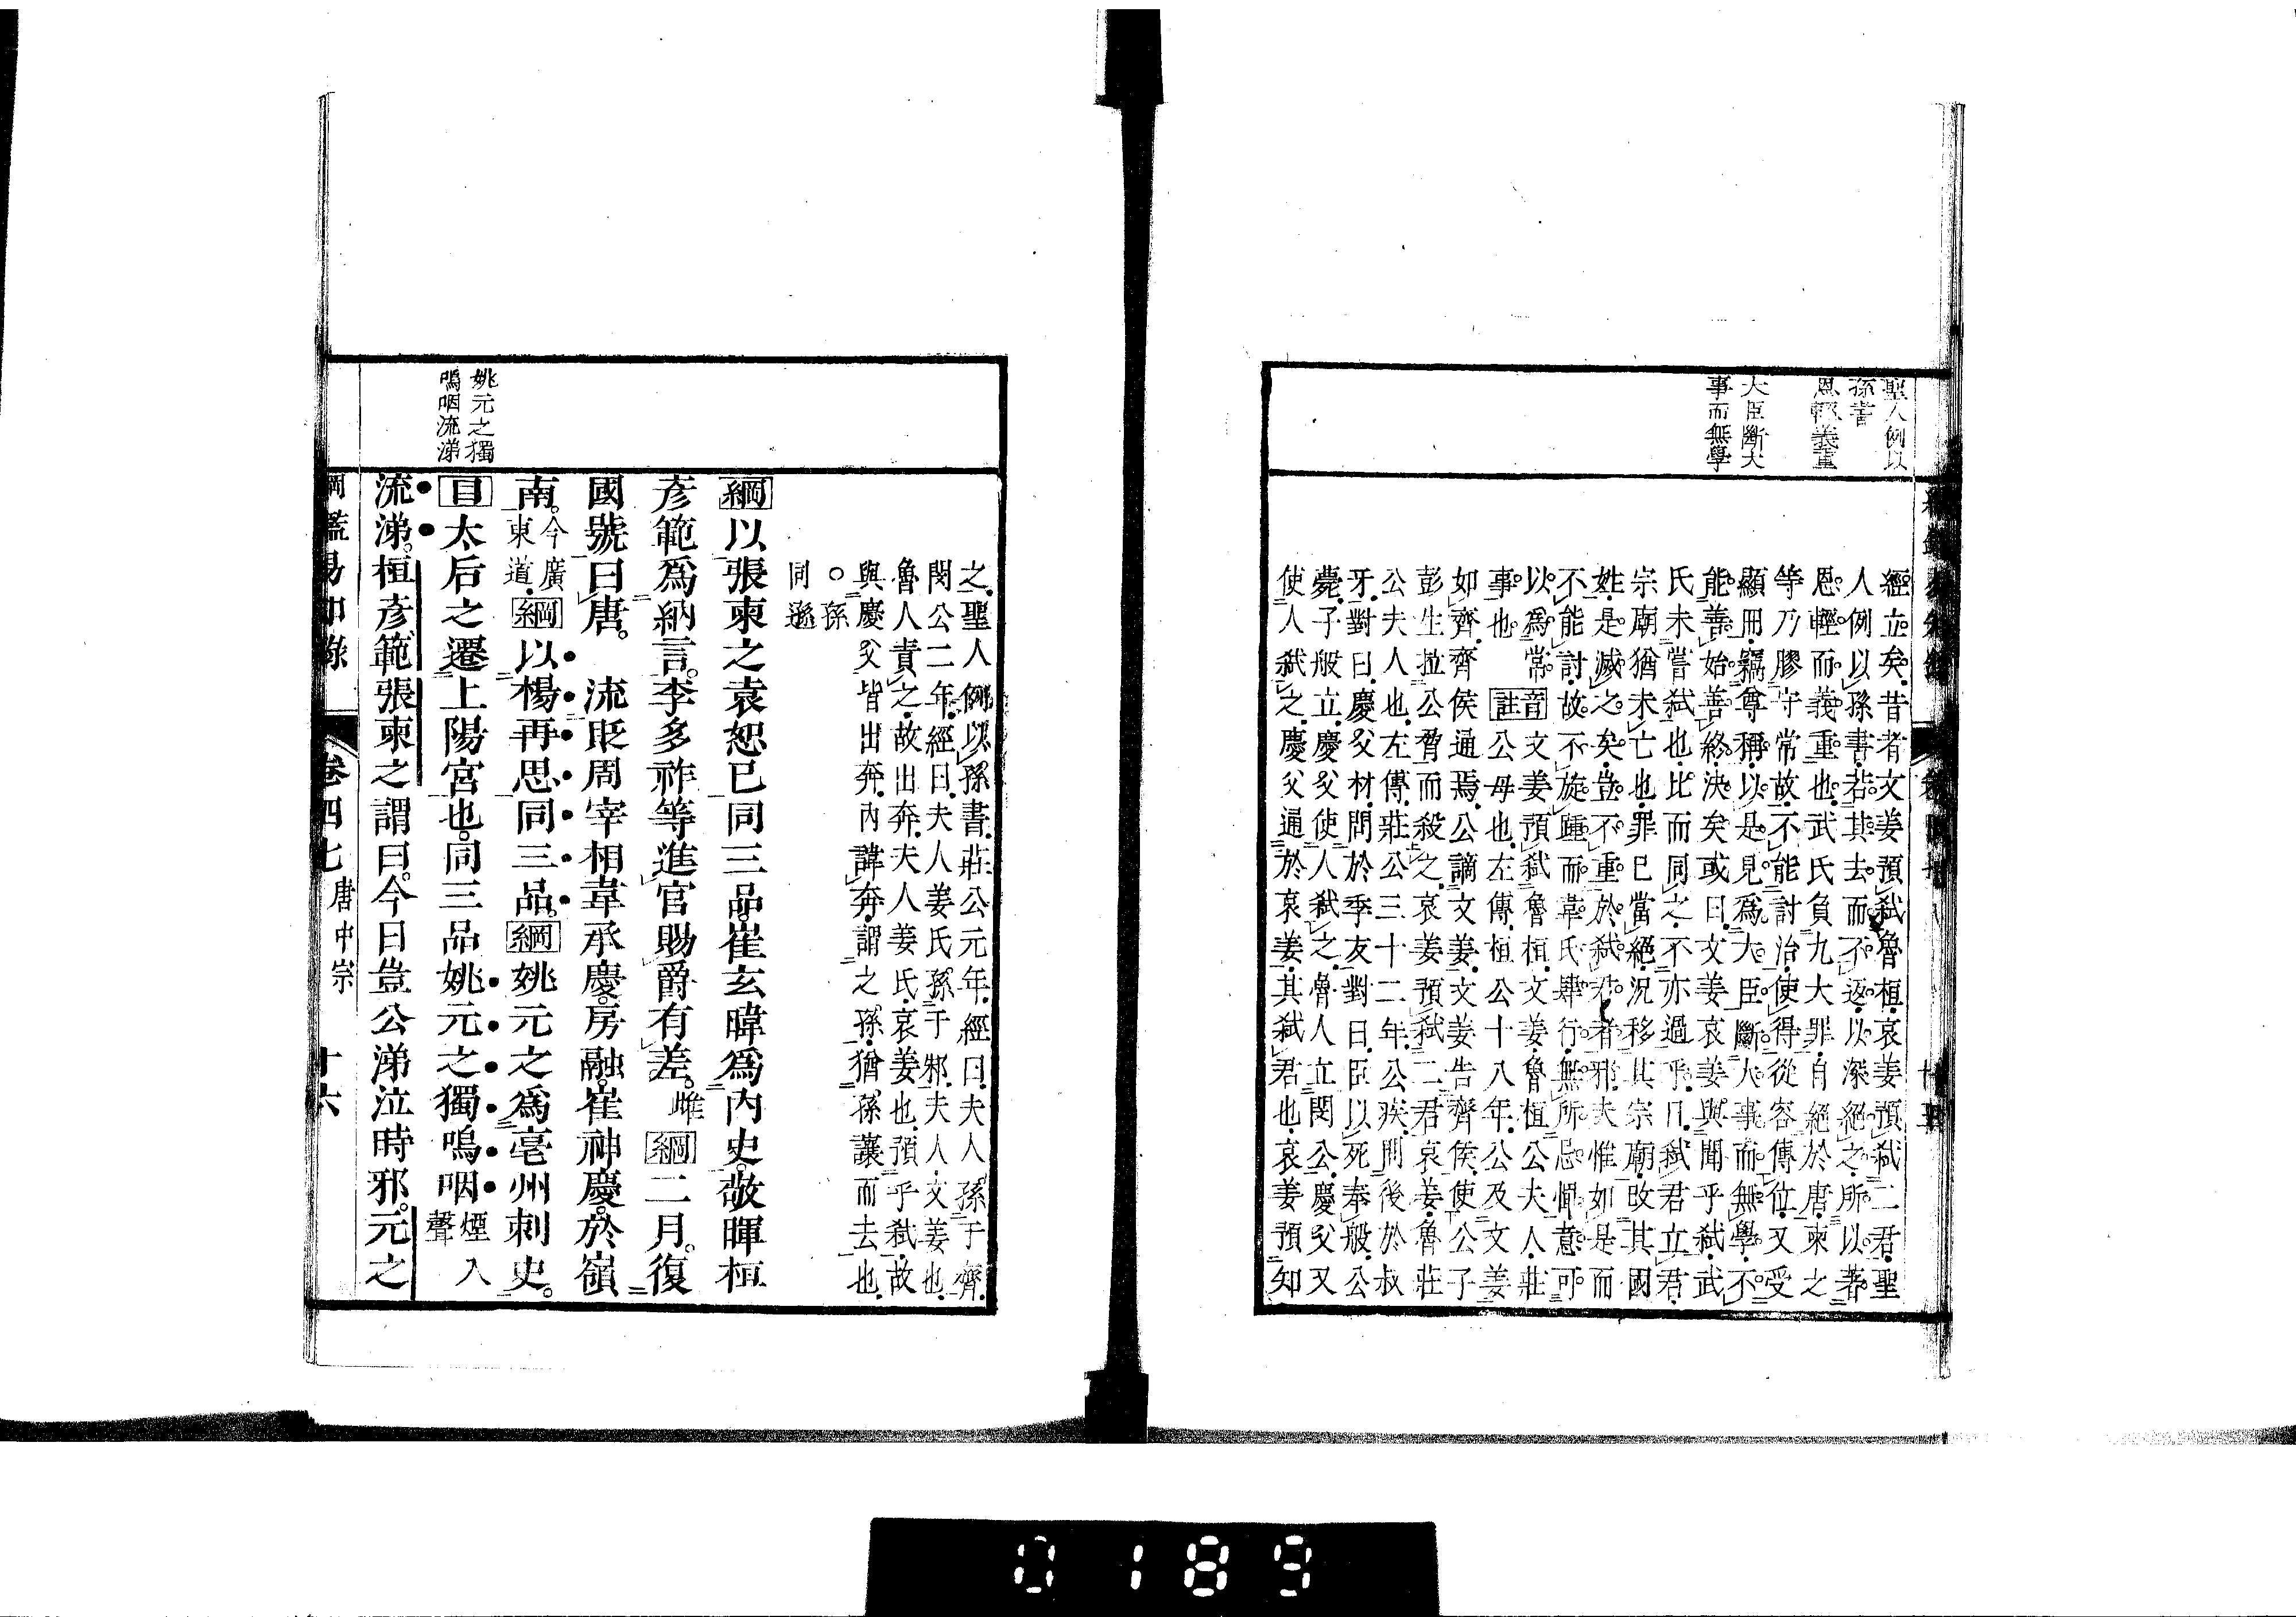 聖人例以
孫書
恩輕義重
大臣斷大
事而無學
經立矣昔者文姜預弑魯桓哀姜預弑二君聖
人例以孫書若其去而不返以深絕之所以著
恩輕而義重也武氏負九大罪自絕於唐柬之
等乃膠守常故不能討治使得從容傳位又受
顯冊竊尊稱以是見爲大臣斷大事而無學不
能善始善終決矣或曰文姜哀姜與聞乎弑武
氏未嘗弑也比而同之不亦過乎曰弑君立君
宗廟猶未亡也罪已當絕況移其宗廟改其國
姓是滅之矣豈不重於弑君者邪夫惟如是而
不能討故不旋踵而韋氏肆行無所忌憚意可
以爲常音文姜預弑魯桓文姜魯桓公夫人莊
事也註公母也左傳桓公十八年公及文姜
如齊齊侯通焉公謫文姜文姜告齊侯使公子
彭生拉公脅而殺之哀姜預弑二君哀姜魯莊
公夫人也左傳莊公三十二年公疾問後於叔
牙對曰慶父材問於季友對曰臣以死奉般公
薨子般立慶父使人弑之魯人立閔公慶父又
使人弑之慶父通於哀姜其弑君也哀姜預知
之聖人例以孫書莊公元年經曰夫人孫于齊
閔公二年經曰夫人姜氏孫于邾夫人文姜也
魯人責之故出奔夫人姜氏哀姜也預乎弑故
與慶父皆出奔內諱奔謂之孫猶孫讓而去也
○孫
同遜
綱以張柬之袁恕已同三品崔玄暐爲內史敬暉桓
彥範爲納言李多祚等進官賜爵有差雌綱二月復
國號曰唐 流貶周宰相韋承慶房融崔神慶於嶺
南今廣東道綱以楊再思同三品綱姚元之爲亳州刺史
姚元之獨
嗚咽流涕
目太后之遷上陽宮也同三品姚元之獨嗚咽煙入聲
流涕桓彥範張柬之謂曰今日豈公涕泣時邪元之
綱鑑易知錄 卷四七 唐中宗 十六
0189